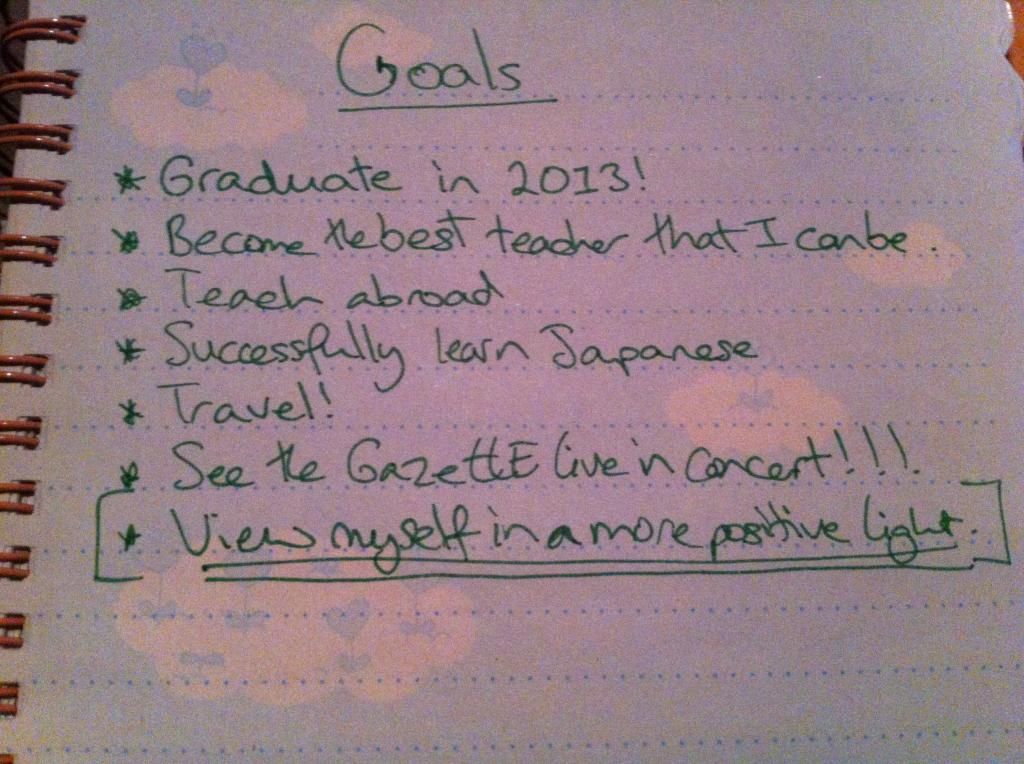 Goals
* Graduate in 2013!
* Become the best teacher that I can be.
* Teach abroad
* Successfully learn Japanese
* Travel!
* See the GazettE live in concert!!!!
* View myself in a more positive light.